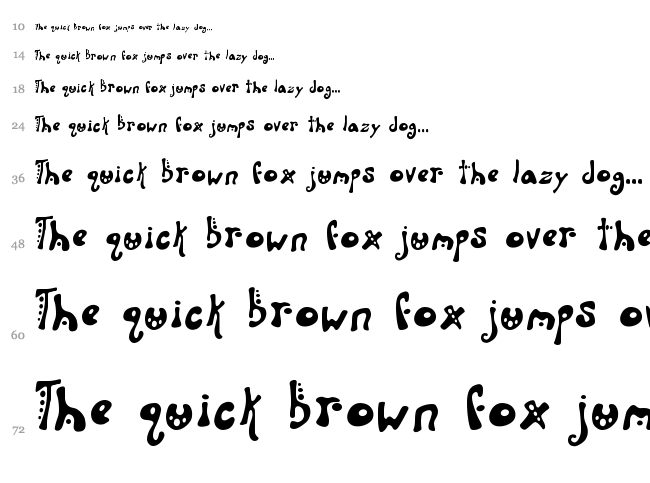 10 The quick brown fox jumps over the lazy dog...
14 The quick brown fox jumps over the lazy dog...
18 The quick brown fox jumps over the lazy dog...
24 The quick brown fox jumps over the lazy dog...
36 The quick brown fox jumps over the lazy dog...
48 The quick brown fox jumps over the
60 The quick brown fox jumps ov
72 The quick brown fox jum